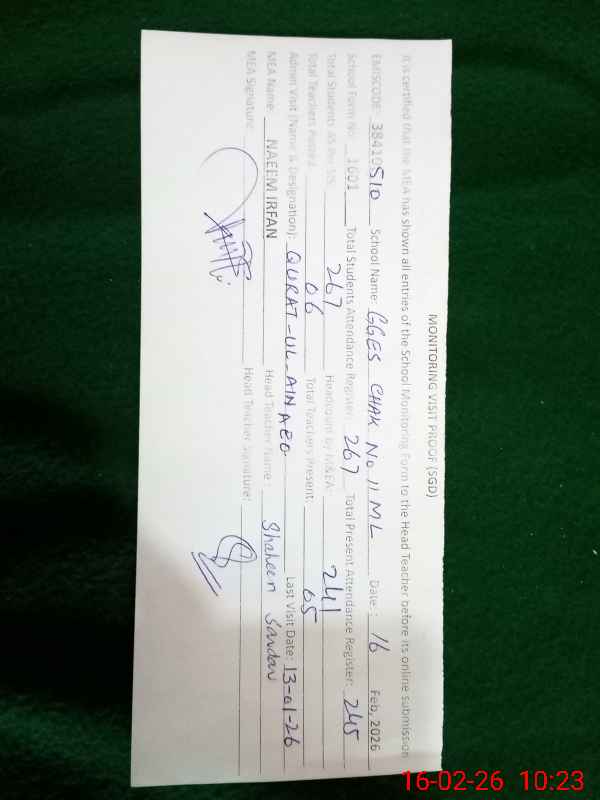 MONITORING VISIT PROOF (SGD)
It is certified that the MEA has shown all entries of the School Monitoring Form to the Head Teacher before its online submission
EMISCODE: 38410510 School Name: GGES CHAK No 11 ML Date: 16 Feb, 2026
School Form No: 1601 Total Students Attendance Register: 267 Total Present Attendance Register: 245
Total Students As Per SIS: 267 Headcount by M&EA: 241
Total Teachers Posted: 06 Total Teachers Present: 05
Admin Visit (Name & Designation): QURAT-UL-AIN AEO Last Visit Date: 13-01-26
MEA Name: NAEEM IRFAN Head Teacher Name: Shaheen Sardar
MEA Signature: Head Teacher Signature:
16-02-26 10:23